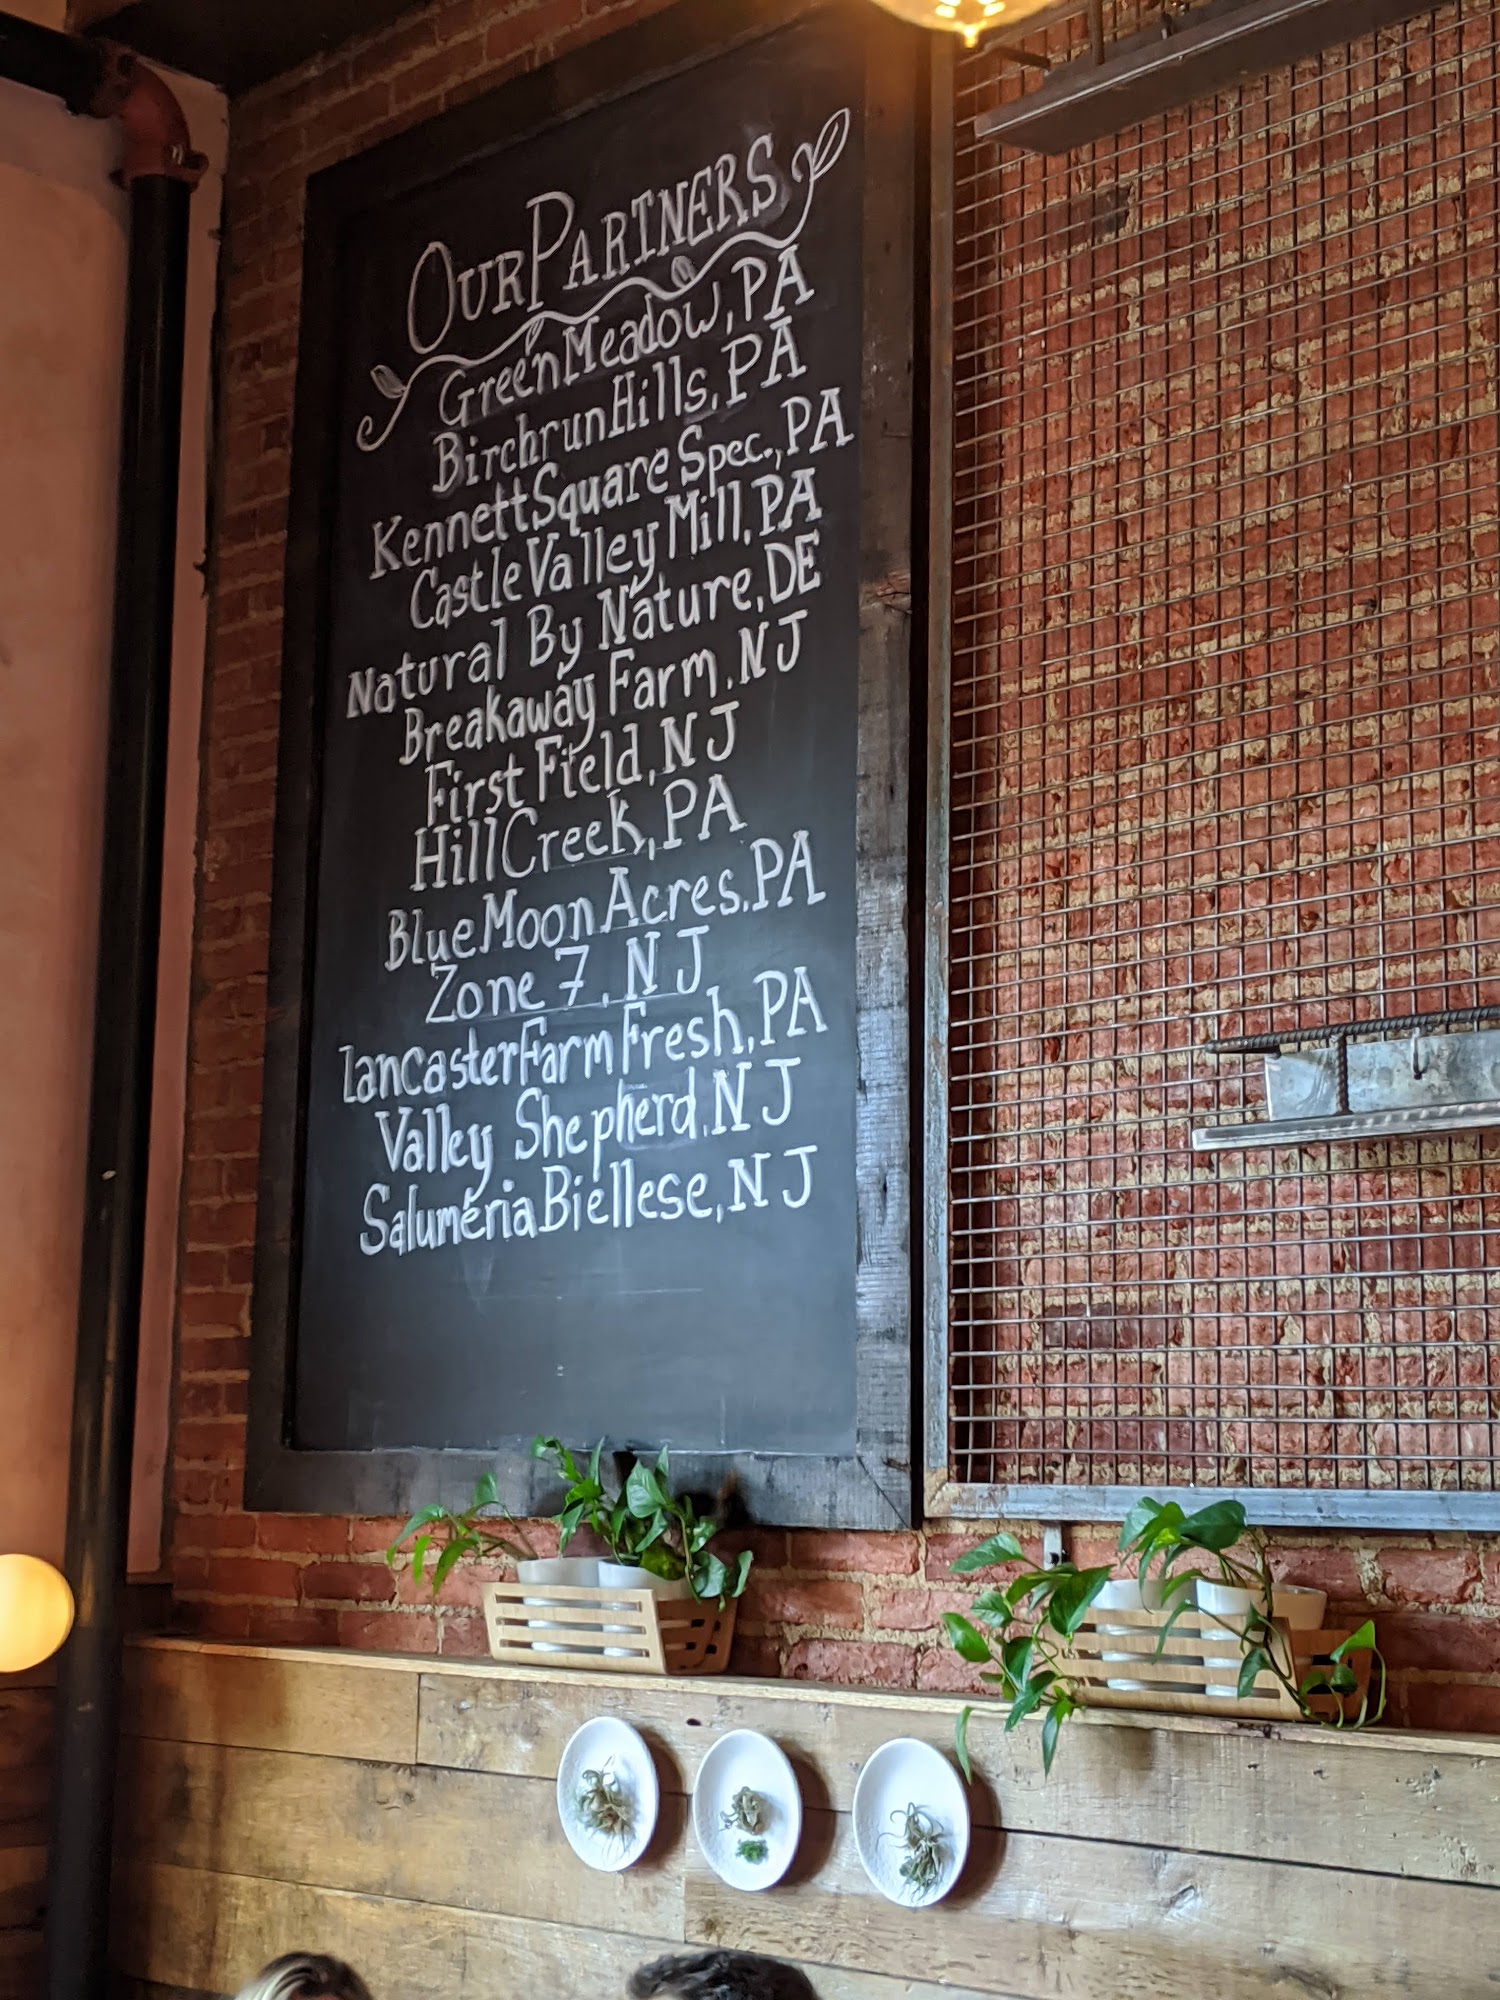 Our Partners
Green Meadow, PA
Birchrun Hills, PA
Kennett Square Spec., PA
Castle Valley Mill, PA
Natural By Nature, DE
Breakaway Farm, NJ
First Field, NJ
Hill Creek, PA
Blue Moon Acres, PA
Zone 7, NJ
Lancaster Farm Fresh, PA
Valley Shepherd, NJ
Salumeria Biellese, NJ